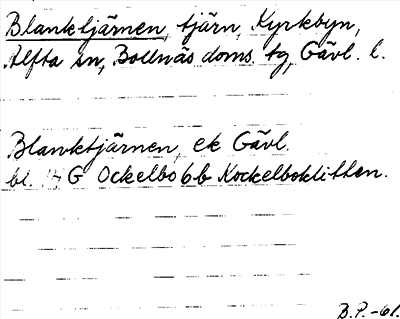 Blanktjärnen, tjärn, Kyrkbyn,
Alfta sn, Bollnäs doms. tg, Gävl. l.
Blanktjärnen, ek Gävl.
bl. G Ockelbo 6b Kockelboklitten.
B.P. -61.